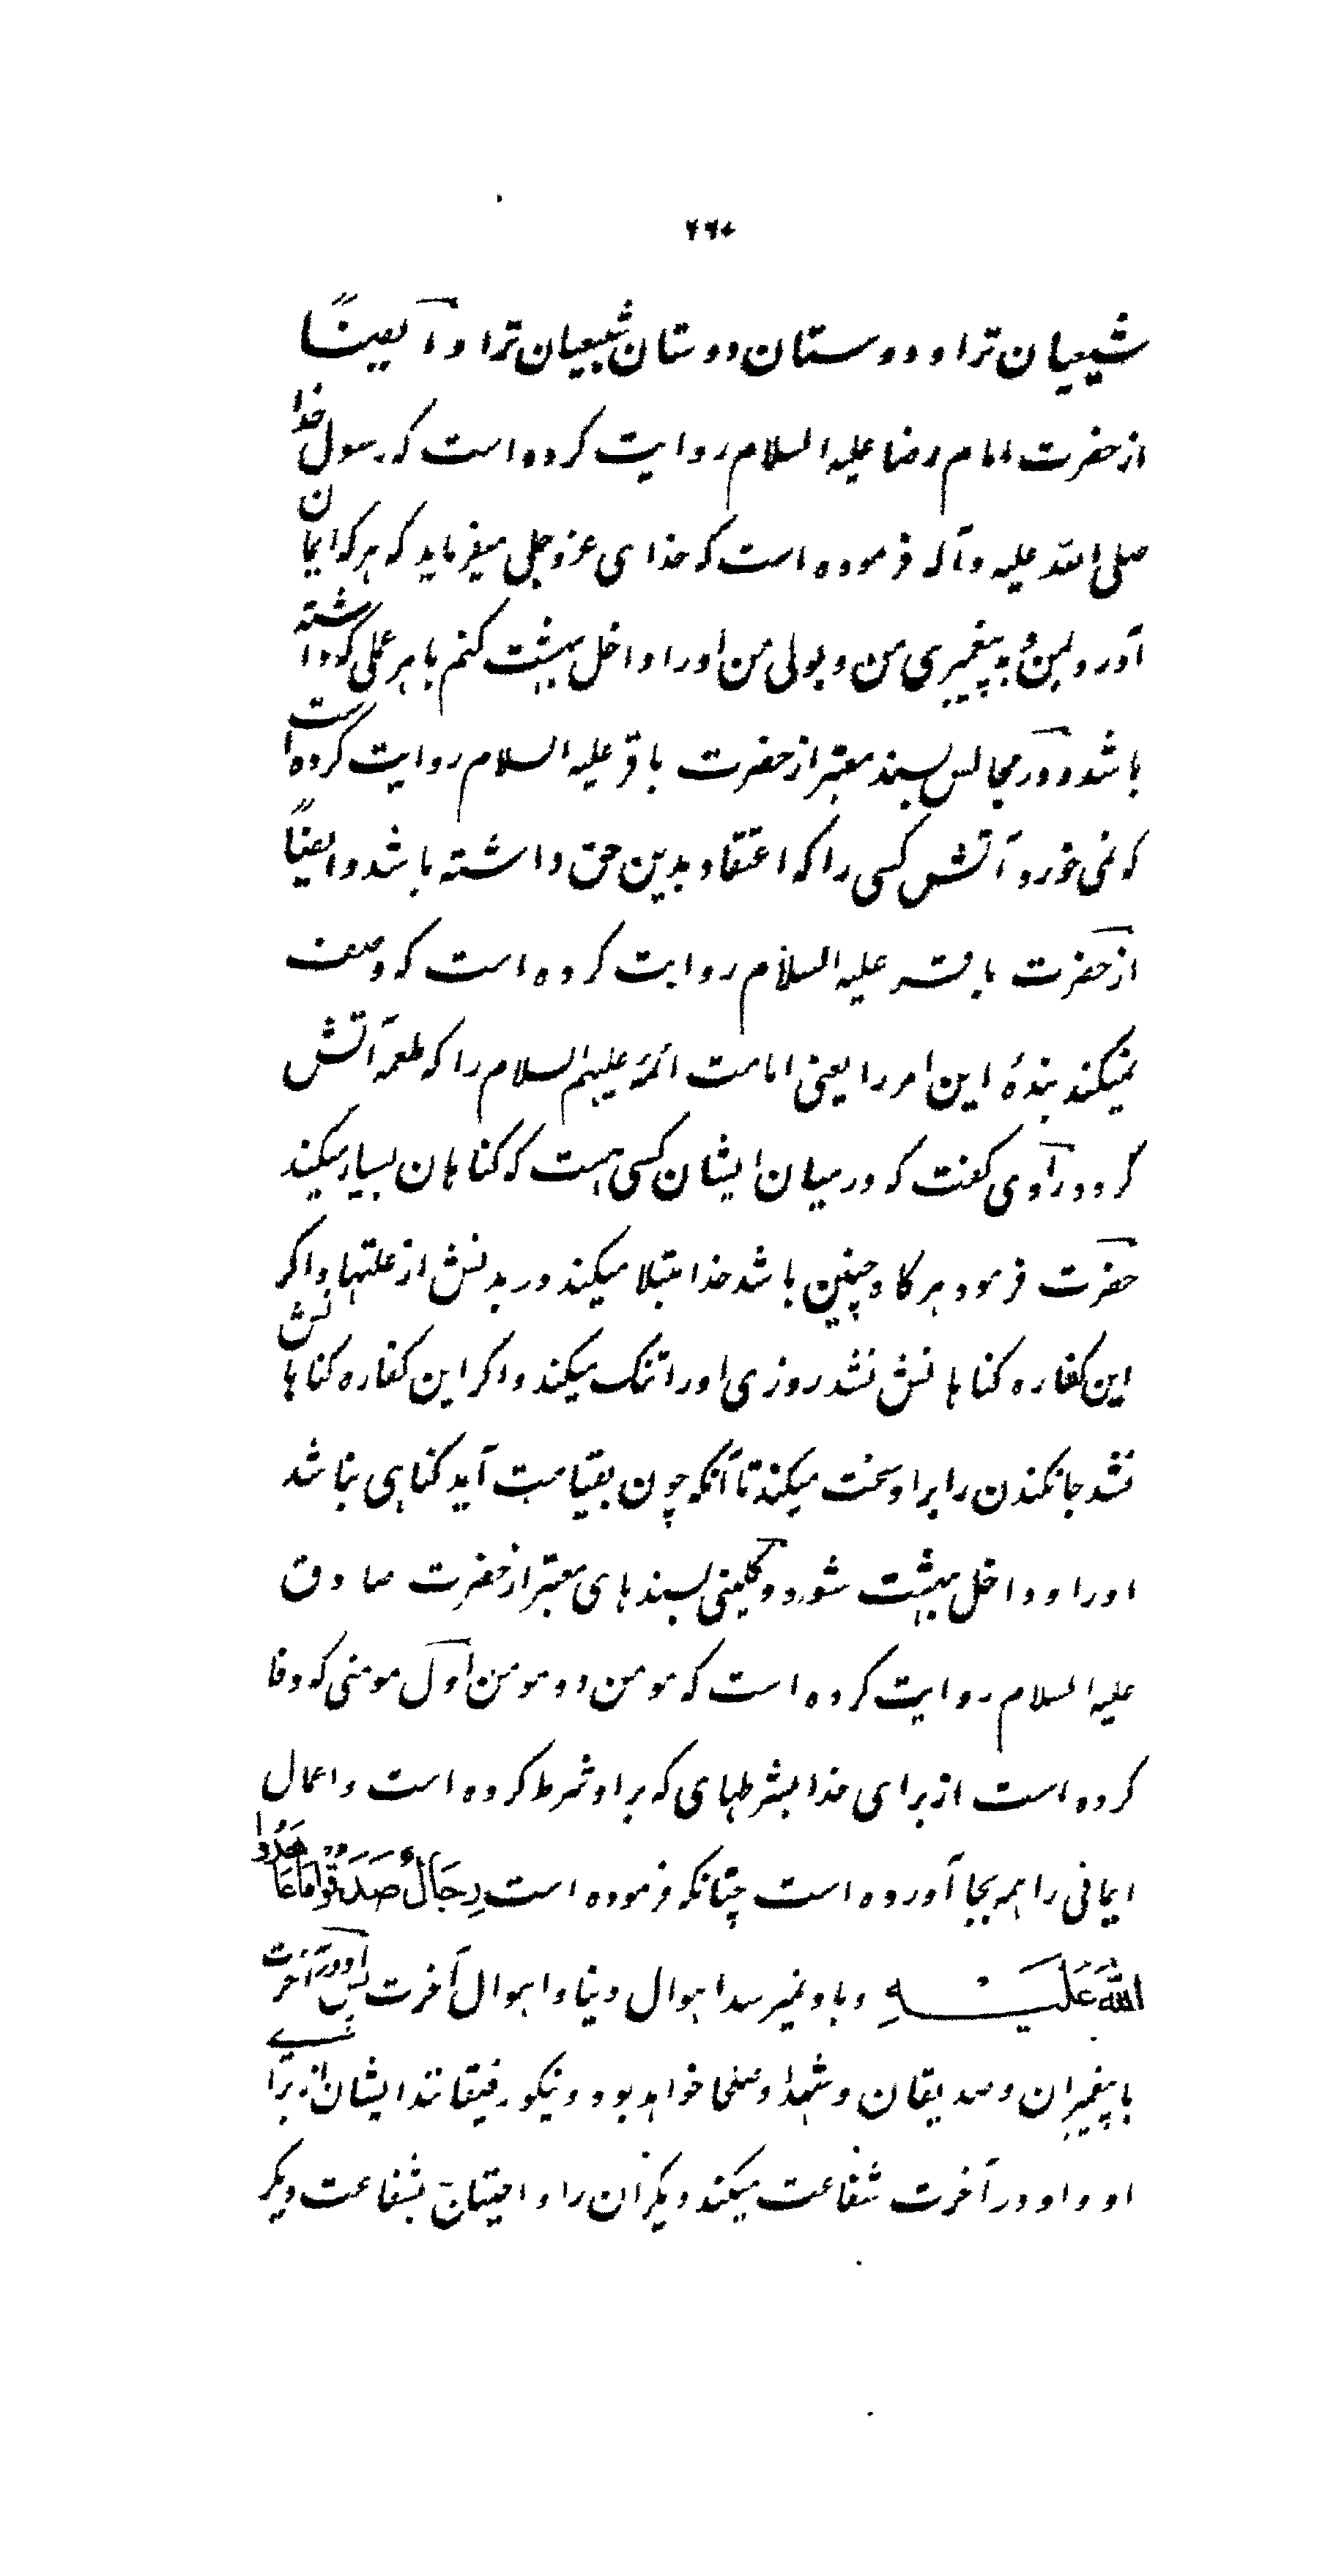 ۶۶۰
شیعیان ترا و دوستان دوستان شیعیان ترا و ایضاً
از حضرت امام رضا علیه السلام روایت کرده است که رسول خدا
صلی الله علیه وآله فرموده است که خدای عزوجل میفرماید که هر که ایمان
آورد بمن و به پیغمبری من و بولی من او را داخل بهشت کنم با هر عملی که داشته
باشد و در مجالس بسند معتبر از حضرت باقر علیه السلام روایت کرده است
که نمی خورد آتش کسی را که اعتقاد بدین حق داشته باشد و ایضاً
از حضرت باقر علیه السلام روایت کرده است که وصف
نمیکند بندۀ این امر را یعنی امامت ائمه علیهم السلام را که طعمه آتش
گردد راوی کفت که در میان ایشان کسی هست که کناهان بسیار میکند
حضرت فرمود هرکاه چنین باشد خدا مبتلا میکند در بدنش از علتها و اکر
این کفاره کناهانش نشد روزی او را تنک میکند و اکر این کفاره کناهانش
نشد جانکندن را بر او سخت میکند تا آنکه چون بقیامت آید کناهی نباشد
او را و داخل بهشت شود و کلینی بسندهای معتبر از حضرت صادق
علیه السلام روایت کرده است که مومن دو مومن اول مومنی که وفا
کرده است از برای خدا بشرطهای که بر او شرط کرده است و اعمال
ایمانی را همه بجا آورده است چنانکه فرموده است رِجَالٌ صَدَقُوْا مَا عَاهَدُوا
اللّٰهَ عَلَیْهِ و باو نمیرسد اهوال دنیا و اهوال آخرت پس او در آخرت
با پیغمبران و صدیقان و شهدا و صلحا خواهد بود و نیکو رفیقانند ایشان از برای
او و او در آخرت شفاعت میکند دیکران را و احتیاج بشفاعت دیکر